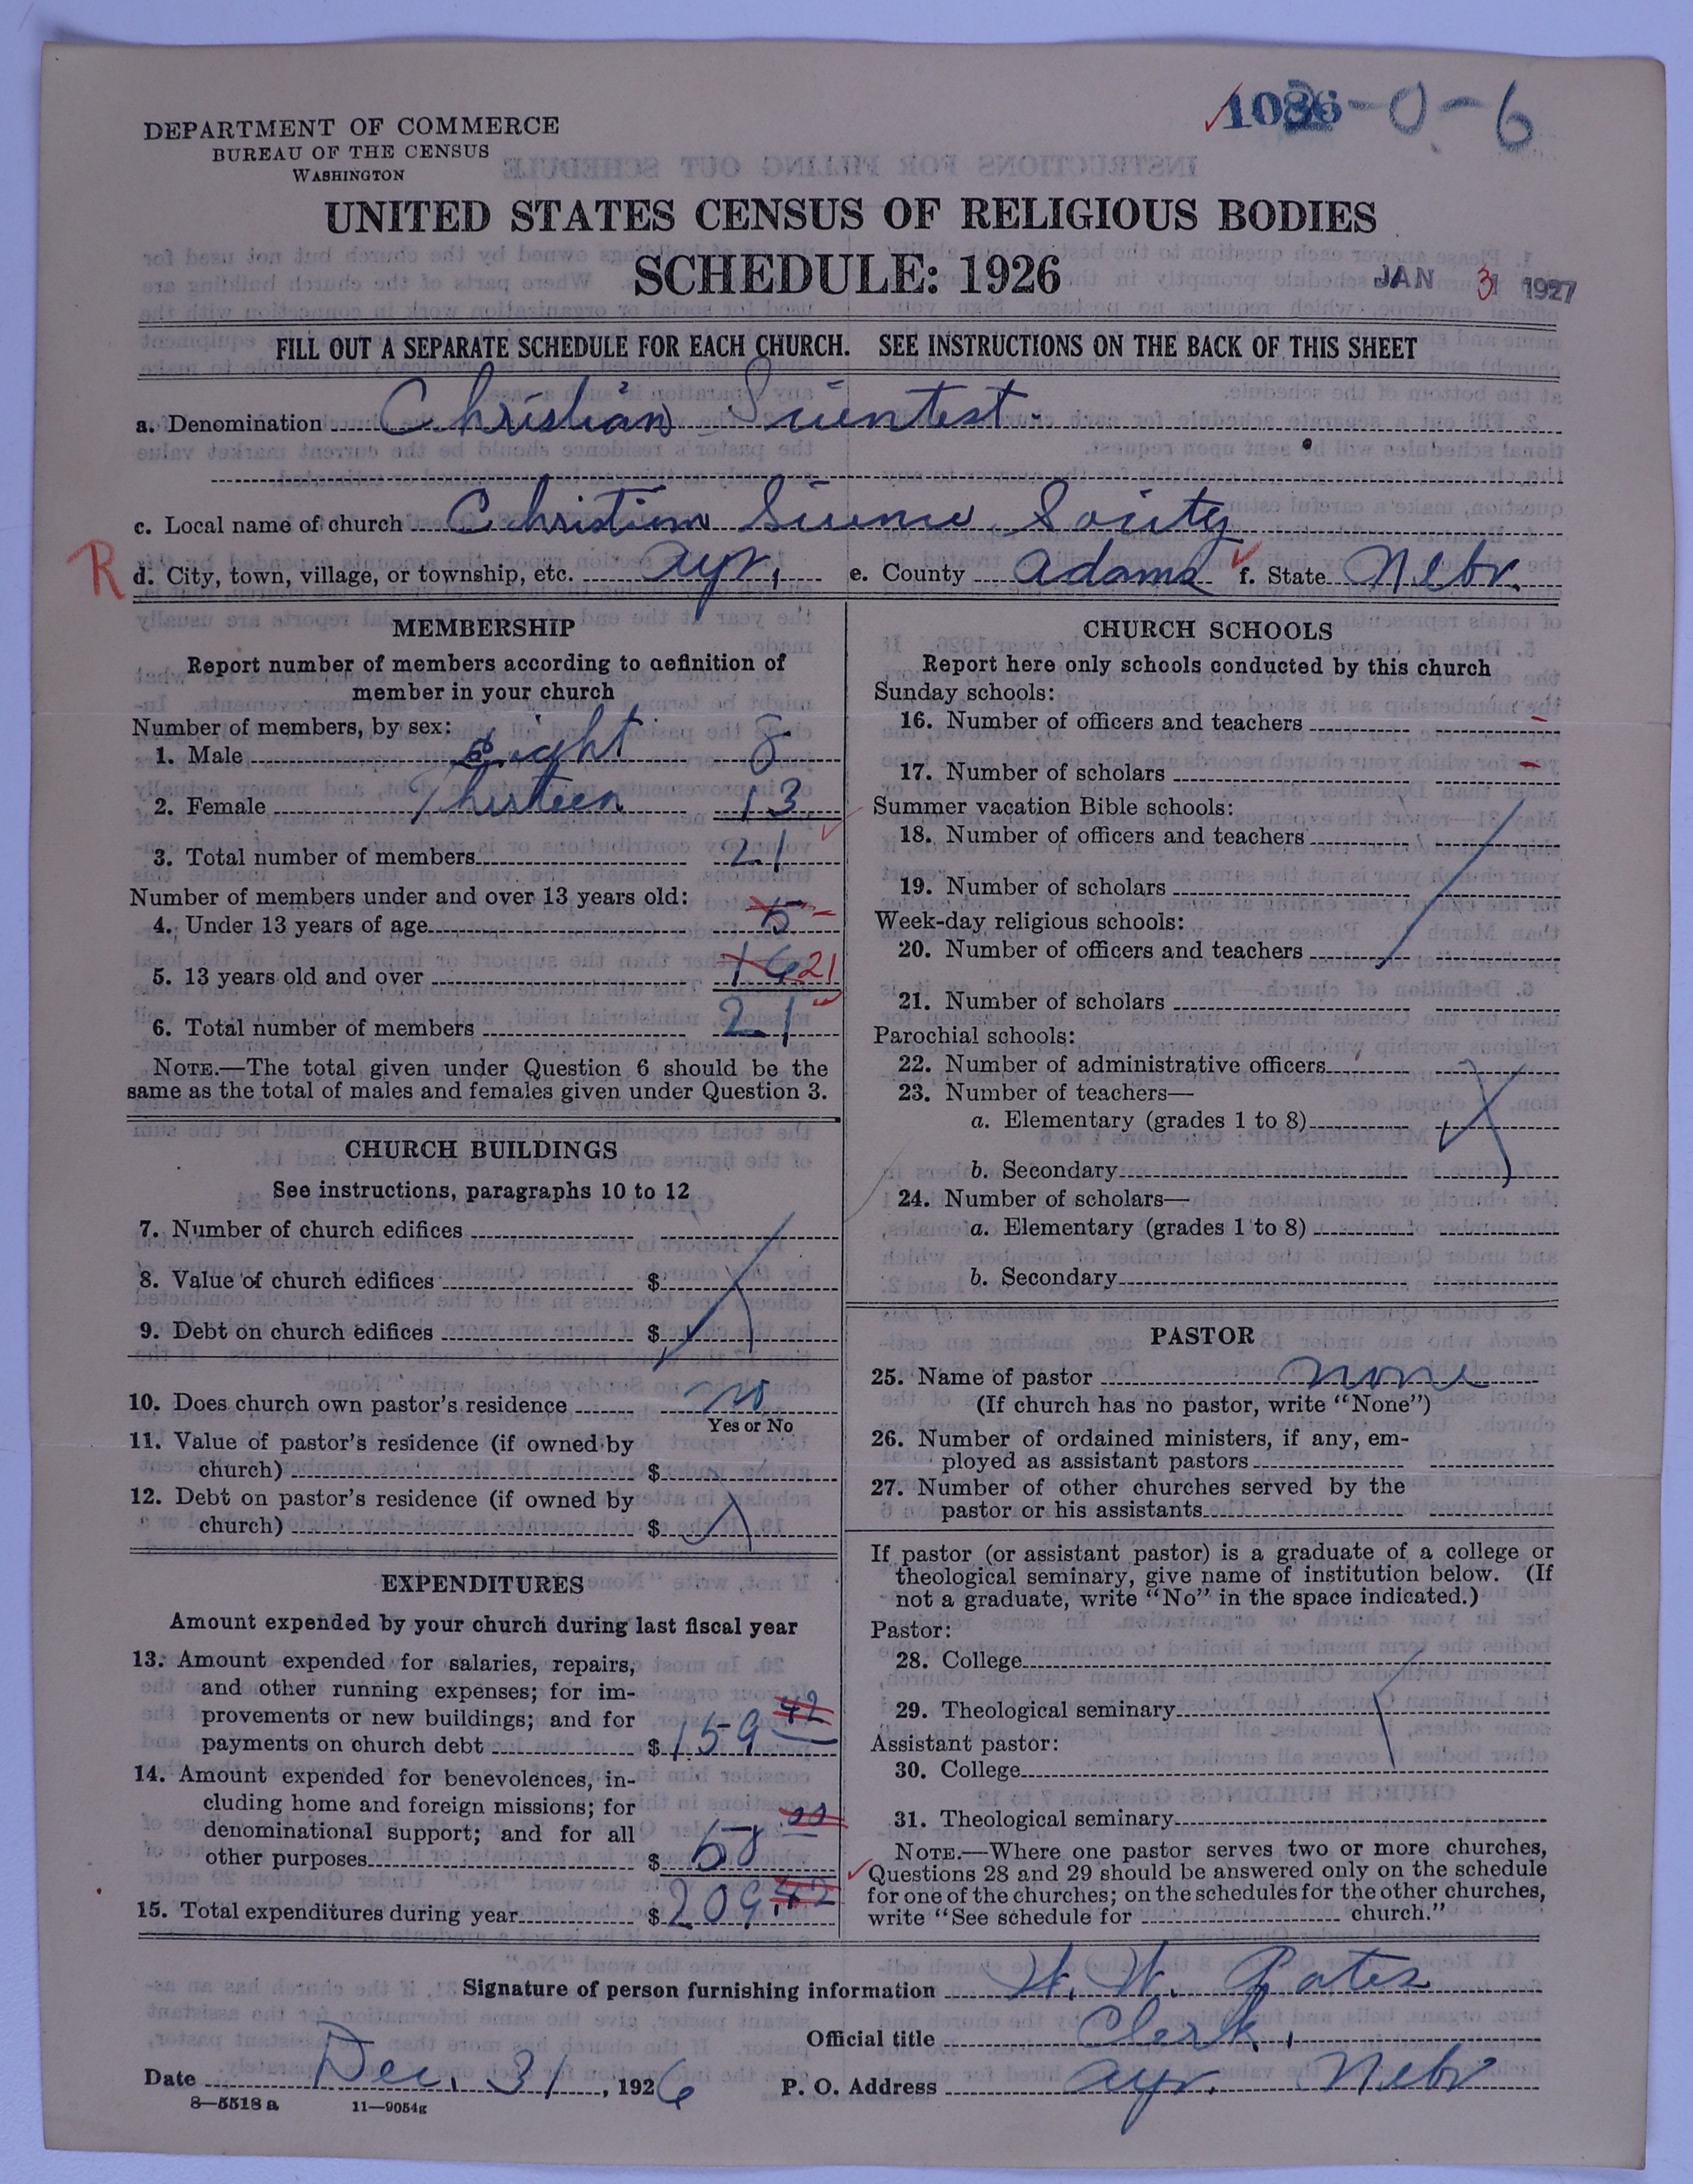 1036-0-6
DEPARTMENT OF COMMERCE
BUREAU OF THE CENSUS
WASHINGTON
UNITED STATES CENSUS OF RELIGIOUS BODIES
SCHEDULE: 1926
JAN 31 1927
FILL OUT A SEPARATE SCHEDULE FOR EACH CHURCH. SEE INSTRUCTIONS ON THE BACK OF THIS SHEET
a. Denomination Christian Scientest.
c. Local name of church Christian Science Society
R d. City, town, village, or township, etc. Ayr, e. County Adams f. State Nebr.
MEMBERSHIP
Report number of members according to definition of
member in your church
Number of members, by sex:
1. Male Eight 8
2. Female Thirteen 13
3. Total number of members 21
Number of members under and over 13 years old:
4. Under 13 years of age 5 -
5. 13 years old and over 16 21
6. Total number of members 21
NOTE.—The total given under Question 6 should be the
same as the total of males and females given under Question 3.
CHURCH BUILDINGS
See instructions, paragraphs 10 to 12
7. Number of church edifices
8. Value of church edifices $
9. Debt on church edifices $
10. Does church own pastor's residence no
Yes or No
11. Value of pastor's residence (if owned by
church) $
12. Debt on pastor's residence (if owned by
church) $
EXPENDITURES
Amount expended by your church during last fiscal year
13. Amount expended for salaries, repairs,
and other running expenses; for im-
provements or new buildings; and for
payments on church debt $ 159 42
14. Amount expended for benevolences, in-
cluding home and foreign missions; for
denominational support; and for all
other purposes $ 50 00
15. Total expenditures during year $ 209.42
CHURCH SCHOOLS
Report here only schools conducted by this church
Sunday schools:
16. Number of officers and teachers -
17. Number of scholars -
Summer vacation Bible schools:
18. Number of officers and teachers
19. Number of scholars
Week-day religious schools:
20. Number of officers and teachers
21. Number of scholars
Parochial schools:
22. Number of administrative officers
23. Number of teachers—
a. Elementary (grades 1 to 8)
b. Secondary
24. Number of scholars—
a. Elementary (grades 1 to 8)
b. Secondary
PASTOR
25. Name of pastor none
(If church has no pastor, write "None")
26. Number of ordained ministers, if any, em-
ployed as assistant pastors
27. Number of other churches served by the
pastor or his assistants
If pastor (or assistant pastor) is a graduate of a college or
theological seminary, give name of institution below. (If
not a graduate, write "No" in the space indicated.)
Pastor:
28. College
29. Theological seminary
Assistant pastor:
30. College
31. Theological seminary
NOTE.—Where one pastor serves two or more churches,
Questions 28 and 29 should be answered only on the schedule
for one of the churches; on the schedules for the other churches,
write "See schedule for church."
Signature of person furnishing information H. W. Gates
Official title Clerk,
Date Dec. 31, 1926 P. O. Address Ayr. Nebr
8—5518 a 11—9054g